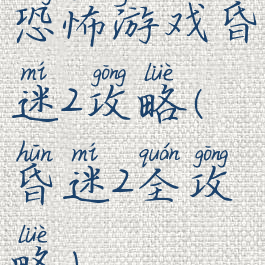 恐怖游戏昏
mí gōng lüè
迷2攻略(
hūn mí quán gōng
昏迷2全攻
lüè
略)